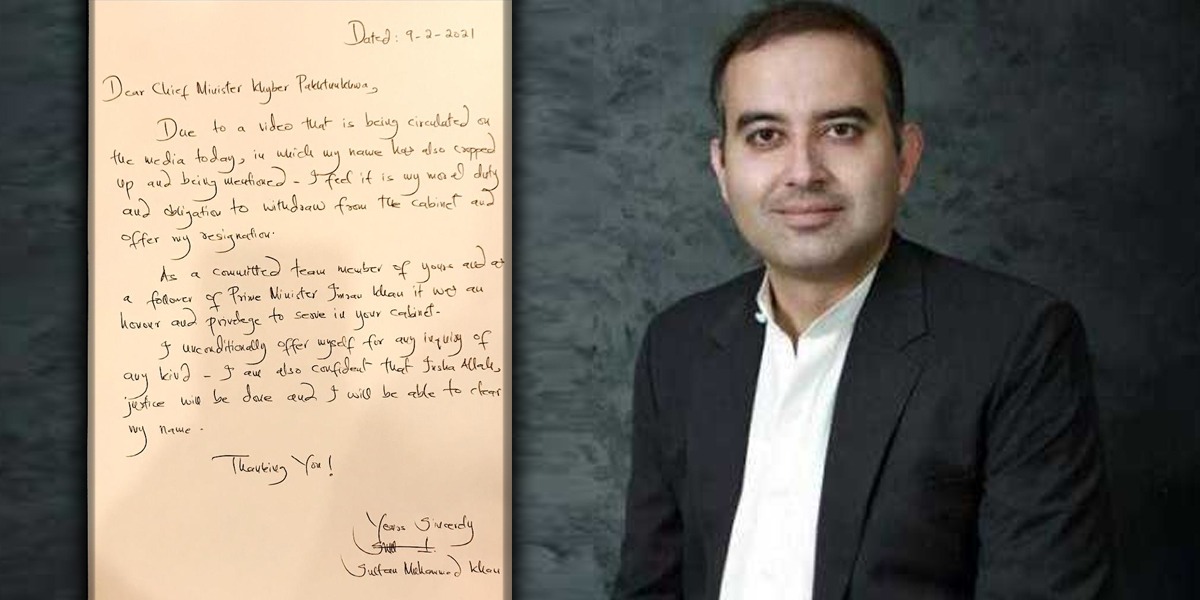 Dated: 9-2-2021
Dear Chief Minister Khyber Pakhtunkhwa,
Due to a video that is being circulated on
the media today, in which my name has also cropped
up and being mentioned - I feel it is my moral duty
and obligation to withdraw from the cabinet and
offer my resignation.
As a committed team member of yours and as
a follower of Prime Minister Imran Khan it was an
honour and privelege to serve in your cabinet.
I unconditionally offer myself for any inquiry of
any kind - I am also confident that Insha Allah,
justice will be done and I will be able to clear
my name.
Thanking You!
Yours Sincerely
Sultan Mohammad Khan